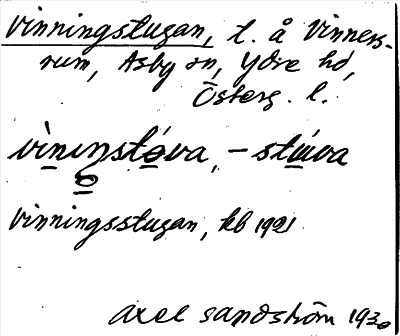 Vinningstugan, t. å Vinners-
rum, Asby sn, Ydre hd,
Österg. l.
vìnɩŋstóva, – stúva
Vinningsstugan, kb 1921
Axel Sandström 1930